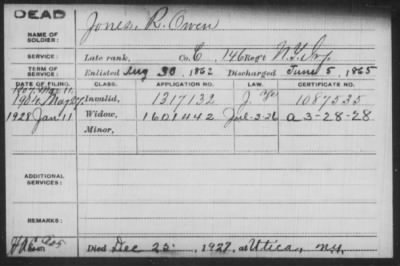 DEAD
NAME OF SOLDIER: Jones, R. Owen
SERVICE: Late rank, Co. C, 146 Reg't N.Y. Inf.
TERM OF SERVICE: Enlisted Aug 30, 1862 Discharged June 5, 1865
DATE OF FILING. CLASS. APPLICATION NO. LAW. CERTIFICATE NO.
1907 Mar 11
1904 May 27 Invalid, 1317132 1087535
1928 Jan 11 Widow, 1601442 A 3-28-28
Minor,
ADDITIONAL SERVICES:
REMARKS:
Died Dec 25 1927, at Utica, N.Y.